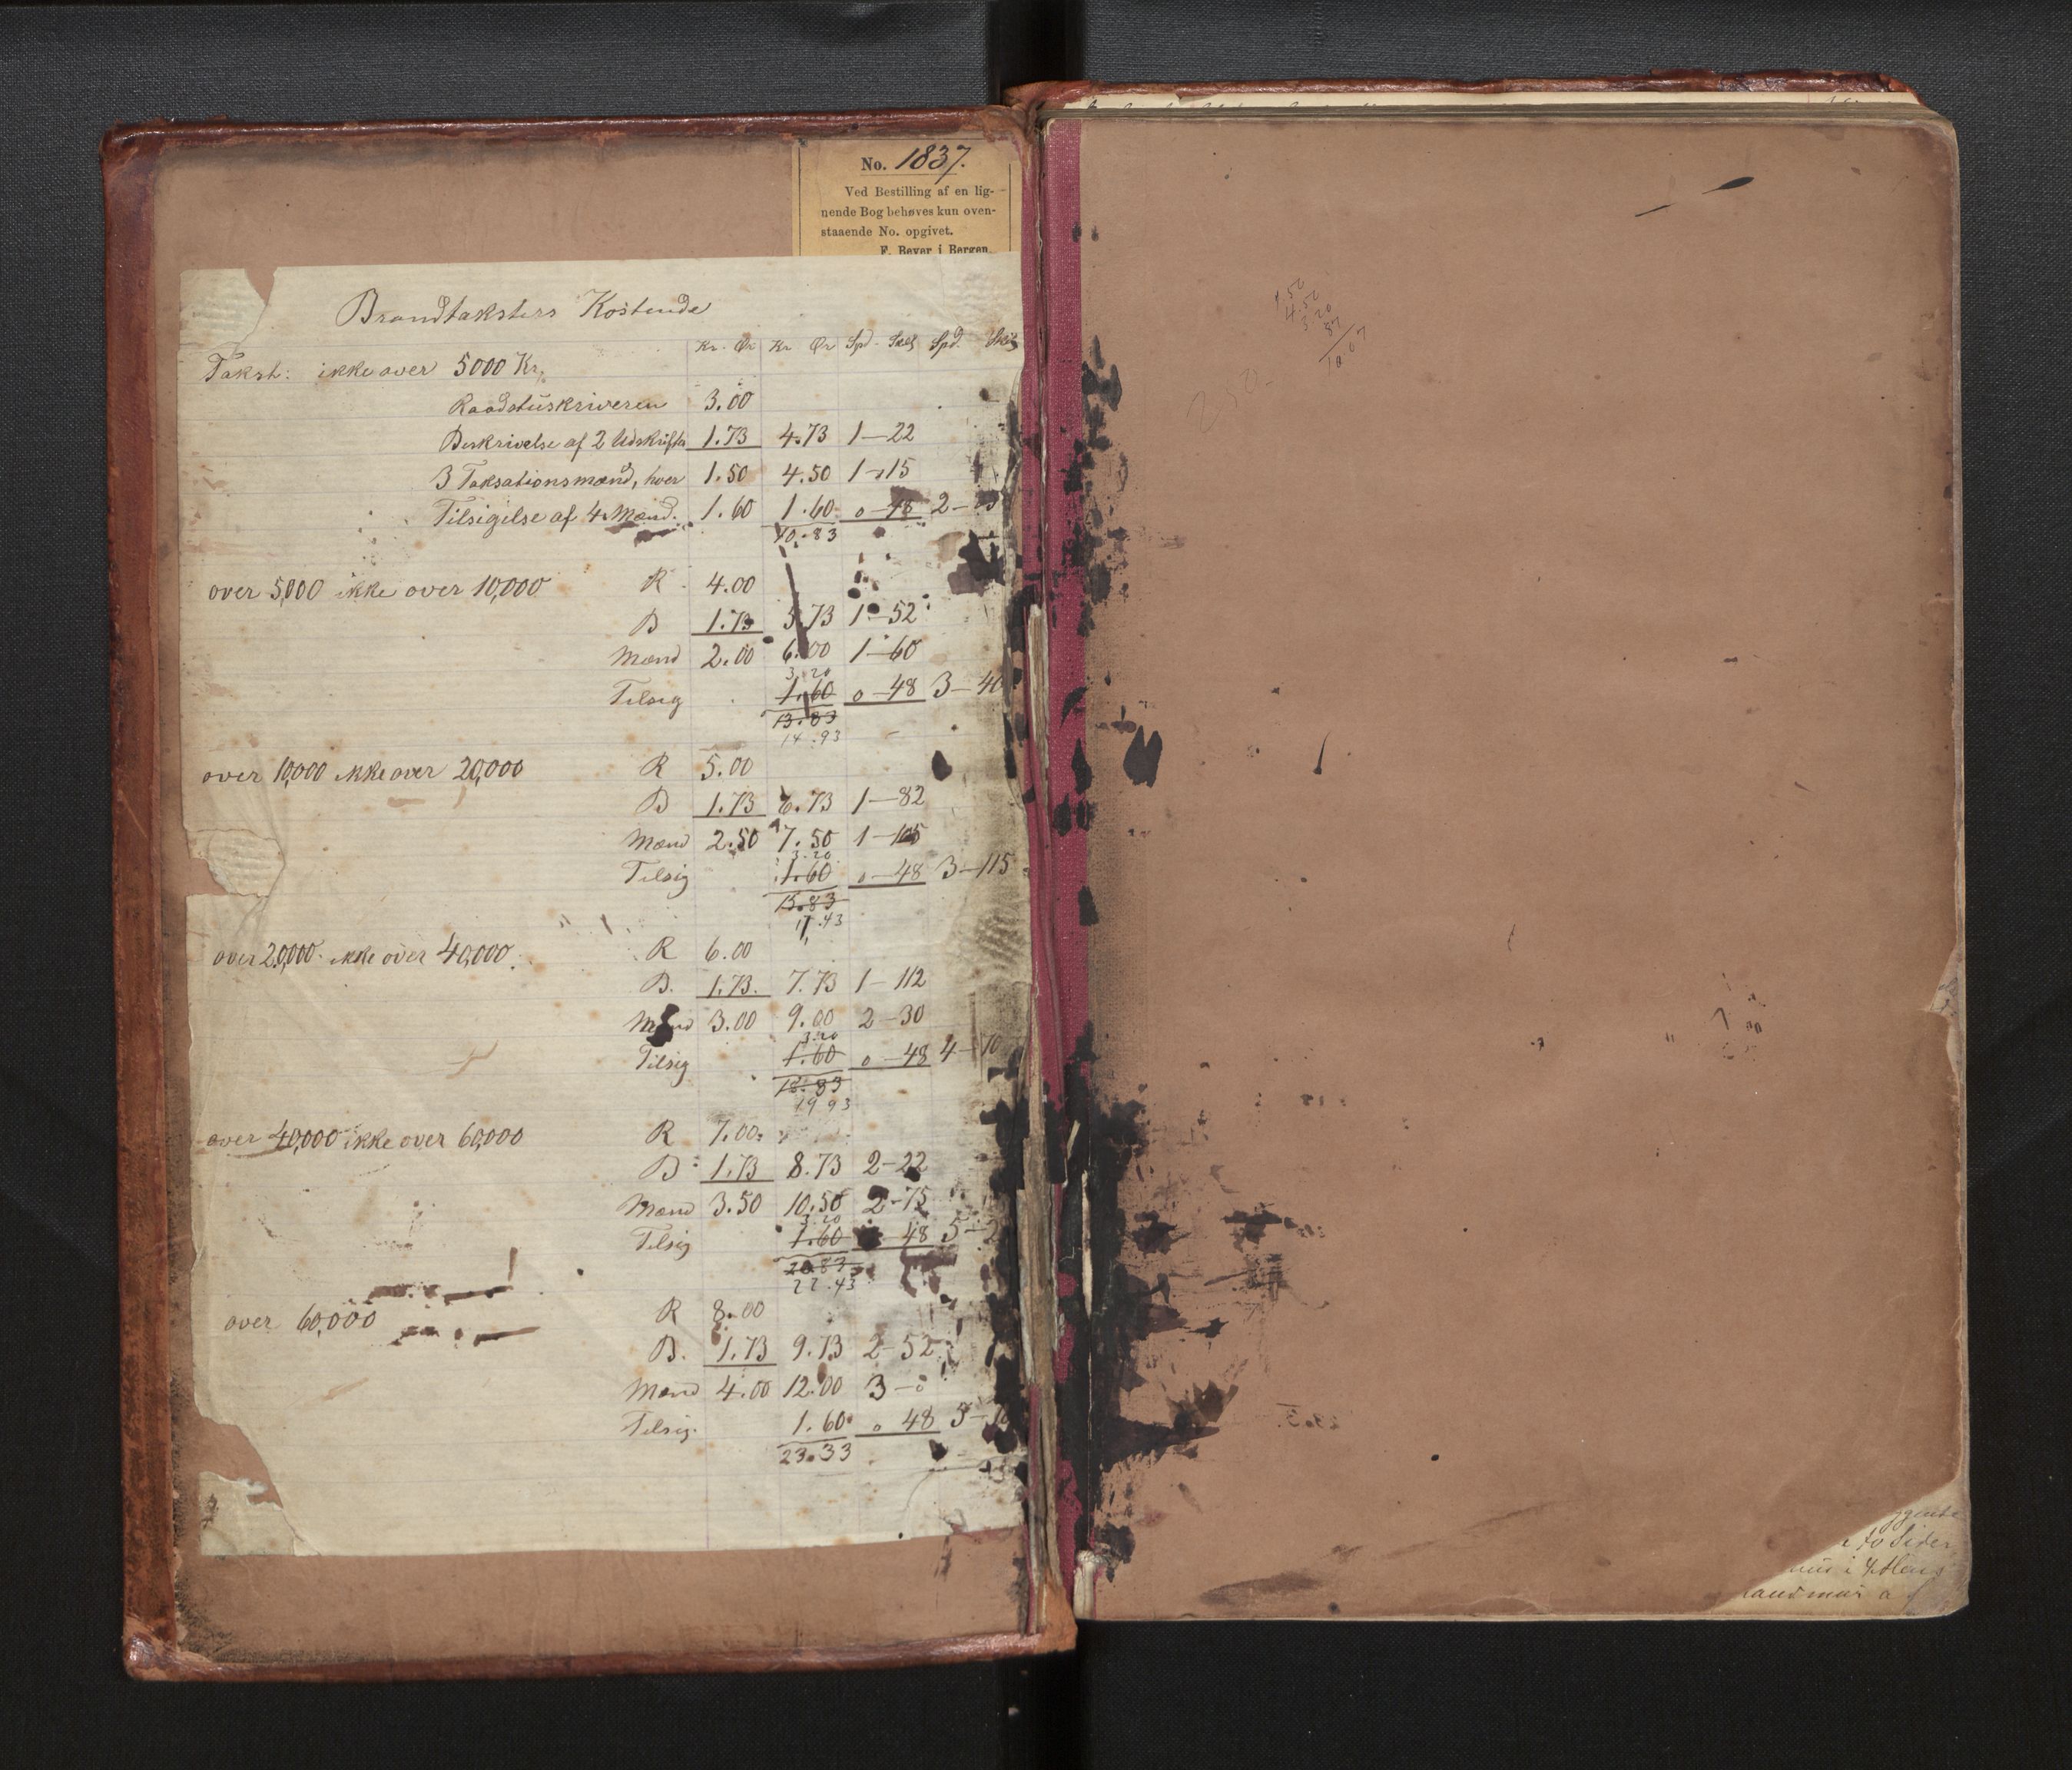 No. 1837.
Ved Bestilling af en lig-
nende Bog behøves kun oven-
staaende No. opgivet.
F. Beyer i Bergen.
Brandtaksters Kostende
Kr. Ør Kr Ør Spd. Sk Spd. Sk
Takst: ikke over 5000 Kr.
Raadstuskriveren 3.00
Beskrivelse af 2 Udskrifter 1.73 4.73 1-22
3 Taksationsmænd, hver 1.50 4.50 1-15
Tilsigelse af 4 Mænd. 1.60 1.60 0-48 2-
10.83
over 5,000 ikke over 10,000 R 4.00
B 1.73 5.73 1-52
Mænd 2.00 6.00 1-60
3.20
Tilsig 1.60 0-48 3-40
13.83
14.93
over 10,000 ikke over 20,000 R 5.00
B 1.73 6.73 1-82
Mænd 2.50 7.50 1-105
3.20
Tilsig 1.60 0-48 3-115
15.83
17.43
over 20,000 ikke over 40,000. R 6.00
B. 1.73. 7.73 1-112
Mænd 3.00 9.00 2-30
3.20
Tilsig 1.60 0-48 4-70
18.83
19 93
over 40,000 ikke over 60,000 R 7.00
B 1.73 8.73 2-22
Mænd 3.50 10.50 2-75
3.20
Tilsig 1.60 48 5-2
20.83
22.43
over 60,000 R 8.00
B. 1.73 9.73 2-52
Mænd 4.00 12.00 3-0
Tilsig. 1.60 0 48 5-
23.33
1.50
4.50
3.20
87
10 07
to Sider